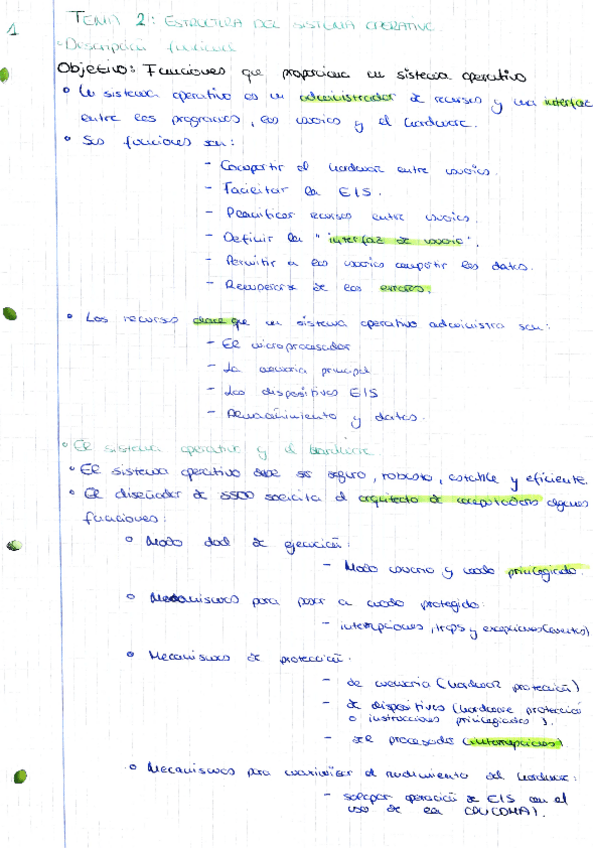 1
TEMA 2: ESTRUCTURA DEL SISTEMA OPERATIVO.
• Descripción funcional
Objetivo: Funciones que proporciona un sistema operativo
• Un sistema operativo es un administrador de recursos y una interfaz
entre los programas, los usuarios y el hardware.
• Sus funciones son:
- Compartir el hardware entre usuarios.
- Facilitar la E/S.
- Planificar recursos entre usuarios.
- Definir la "interfaz de usuario".
- Permitir a los usuarios compartir los datos.
- Recuperarse de los errores.
• Los recursos clave que un sistema operativo administra son:
- El microprocesador
- La memoria principal
- Los dispositivos E/S
- Almacenamiento y datos.
• El sistema operativo y el hardware
• El sistema operativo debe ser seguro, robusto, estable y eficiente.
• El diseñador de SSOO solicita al arquitecto de computadores algunas
funciones:
o Modo dual de ejecución:
- Modo usuario y modo privilegiado.
o Mecanismos para pasar a modo protegido:
- interrupciones, traps y excepciones (eventos)
o Mecanismos de protección:
- de memoria (hardware protección)
- de dispositivos (hardware protección
o instrucciones privilegiadas).
- del procesador (interrupciones)
o Mecanismos para maximizar el rendimiento del hardware:
- solapar operación de E/S con el
uso de la CPU (DMA).